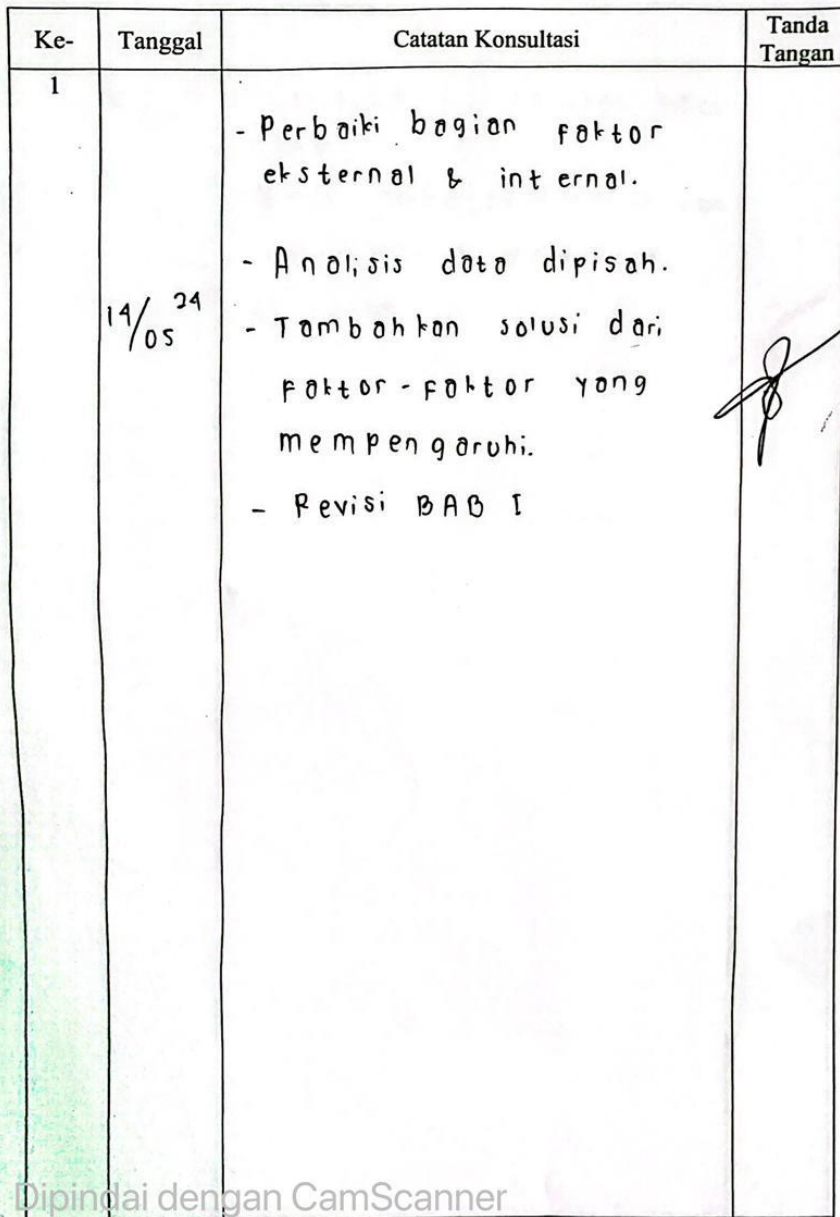 Ke- Tanggal Catatan Konsultasi Tanda
Tangan
1
- Perbaiki bagian faktor
eksternal & internal.
- Analisis data dipisah.
14/05 24
- Tambahkan solusi dari
faktor-faktor yang
mempengaruhi.
- Revisi BAB I
Dipindai dengan CamScanner